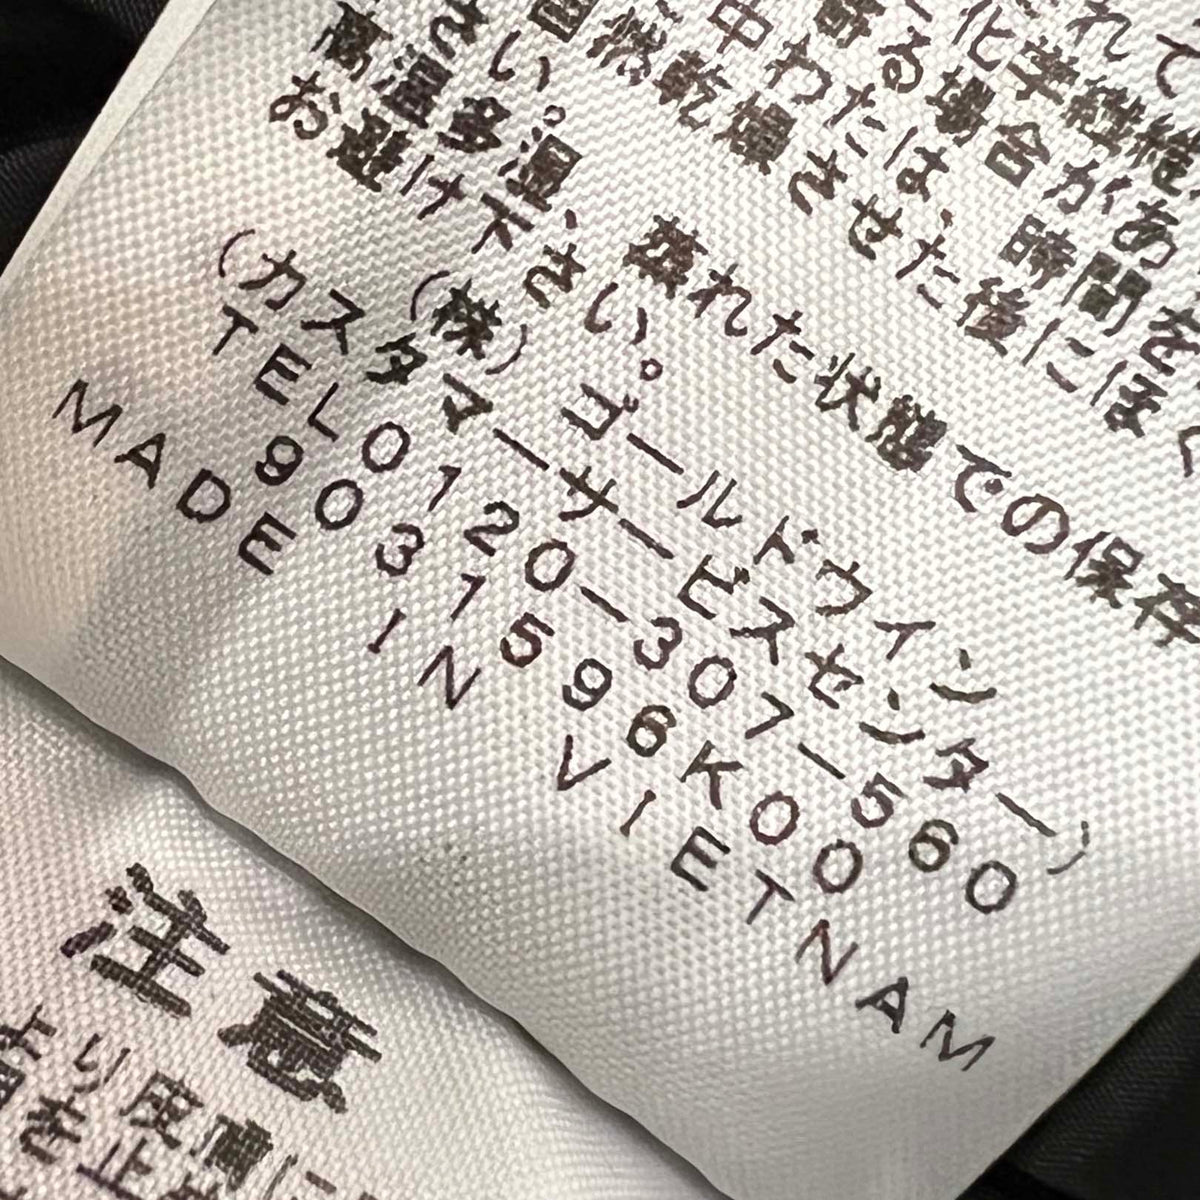 れて
化学繊維
寄る場合があ
中わたは、時間を
自然乾燥させた後にほぐ
さい。
高温多湿、蒸れた状態での保存
お避け下さい。
(株)ゴールドウイン
(カスタマーサービスセンター)
TEL0120-307-560
9031596K00
MADE IN VIETNAM
注意
より皮膚に
を止め